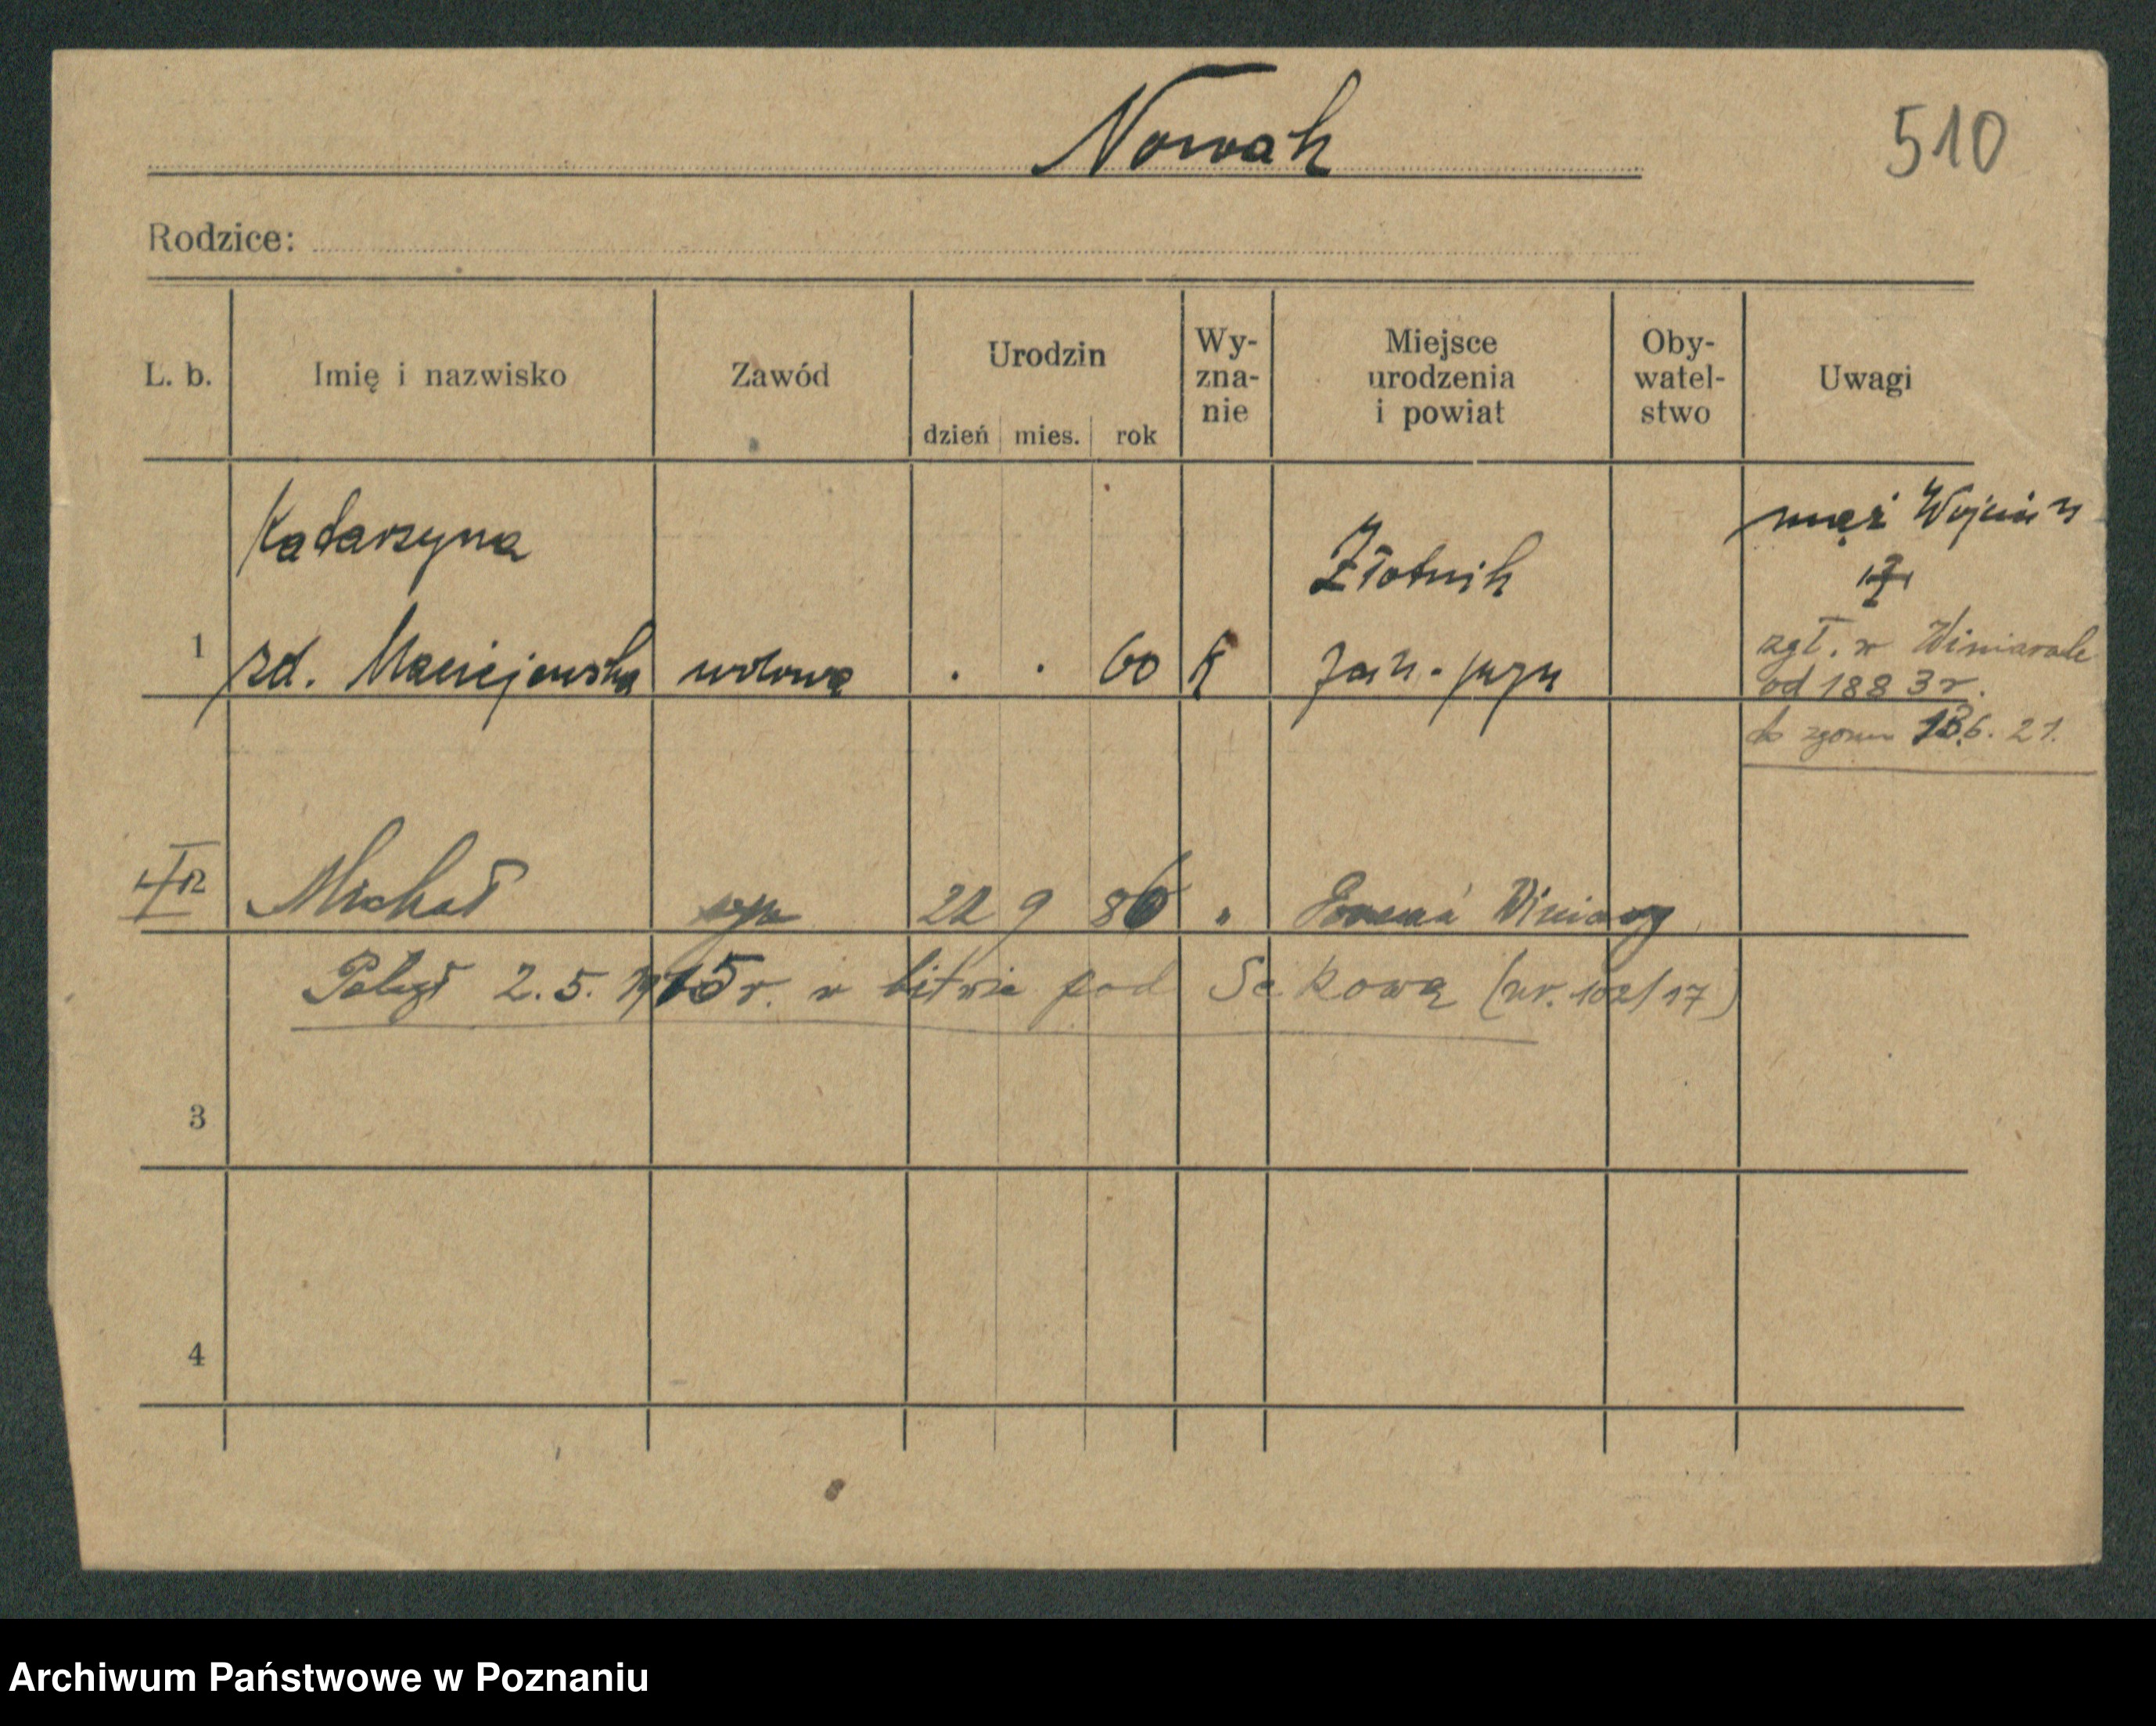 Nowak
510
Rodzice:
L. b. Imię i nazwisko Zawód Urodzin dzień mies. rok Wy-zna-nie Miejsce urodzenia i powiat Oby-watel-stwo Uwagi
Katarzyna Złotnik mąż Wojciech
1 zd. Maciejewska wdowa . . 60 K
zgł. w Winiarach
od 1883 r.
do zgonu 18.6.21.
Michał syn 22 9 86 " Winiary
Poległ 2.5.1915 r. w bitwie pod Sękową (nr. 102/17)
3
4
Archiwum Państwowe w Poznaniu